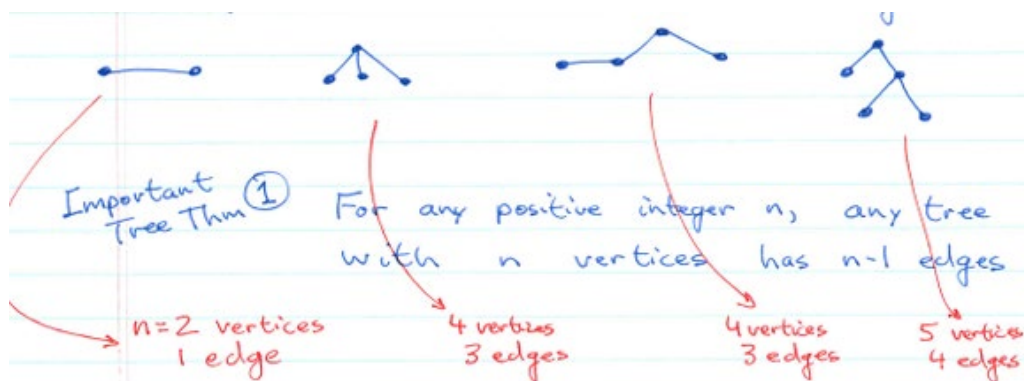 Important
Tree Thm ①
For any positive integer n, any tree
with n vertices has n-1 edges
n=2 vertices
1 edge
4 vertices
3 edges
4 vertices
3 edges
5 vertices
4 edges